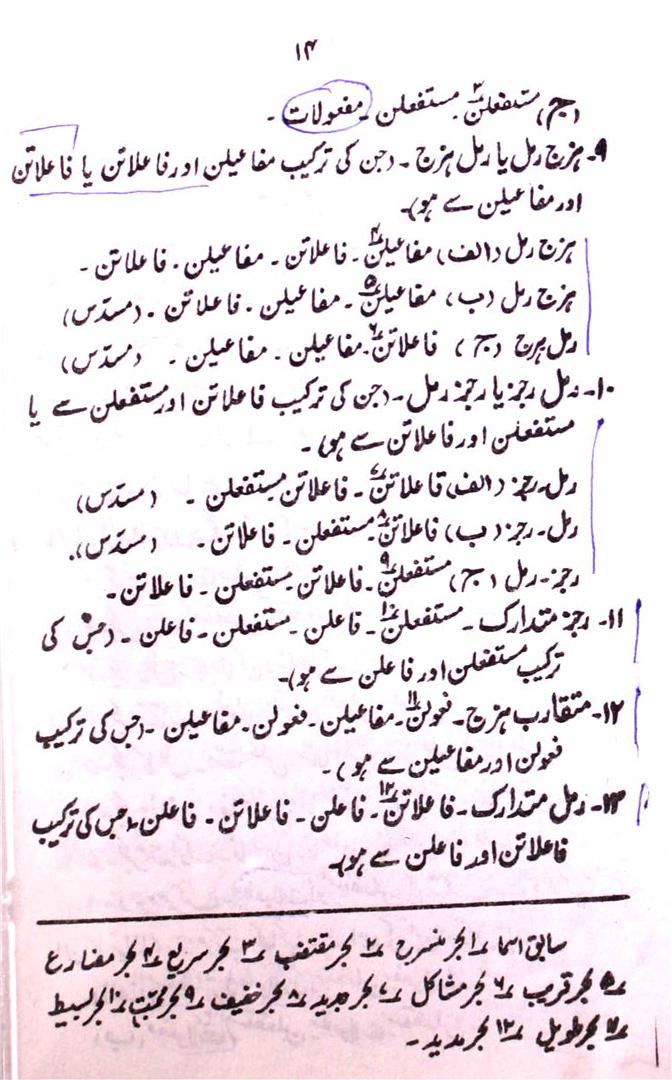 ۱۴
(ج) مستفعلن۳۔ مستفعلن۔ مفعولات۔
۹۔ ہزج رمل یا رمل ہزج۔ (جن کی ترکیب مفاعیلن اور فاعلاتن یا فاعلاتن
اور مفاعیلن سے ہو)۔
ہزج رمل (الف) مفاعیلن۴۔ فاعلاتن۔ مفاعیلن۔ فاعلاتن۔
ہزج رمل (ب) مفاعیلن۵۔ مفاعیلن۔ فاعلاتن۔ (مسدّس)
رمل ہزج (ج) فاعلاتن۶۔ مفاعیلن۔ مفاعیلن۔ (مسدّس)
۱۰۔ رمل رجز یا رجز رمل۔ (جن کی ترکیب فاعلاتن اور مستفعلن سے یا
مستفعلن اور فاعلاتن سے ہو)۔
رمل۔ رجز (الف) فاعلاتن۷۔ فاعلاتن۔ مستفعلن۔ (مسدّس)
رمل۔ رجز (ب) فاعلاتن۸۔ مستفعلن۔ فاعلاتن۔ (مسدّس)۔
رجز۔ رمل (ج) مستفعلن۹۔ فاعلاتن۔ مستفعلن۔ فاعلاتن۔
۱۱۔ رجز متدارک۔ مستفعلن۱۰۔ فاعلن۔ مستفعلن۔ فاعلن۔ (جس کی
ترکیب مستفعلن اور فاعلن سے ہو)۔
۱۲۔ متقارب ہزج۔ فعولن۱۱۔ مفاعیلن۔ فعولن۔ مفاعیلن۔ (جس کی ترکیب
فعولن اور مفاعیلن سے ہو)۔
۱۳۔ رمل متدارک۔ فاعلاتن۱۲۔ فاعلن۔ فاعلاتن۔ فاعلن۔ (جس کی ترکیب
فاعلاتن اور فاعلن سے ہو)۔
سابق اسما ۱؎ بحر منسرح ۲؎ بحر مقتضب ۳؎ بحر سریع ۴؎ بحر مضارع
۵؎ بحر قریب ۶؎ بحر مشاکل ۷؎ بحر جدید ۸؎ بحر خفیف ۹؎ بحر مجتث ۱۰؎ بحر بسیط
۱۱؎ بحر طویل ۱۲؎ بحر مدید۔